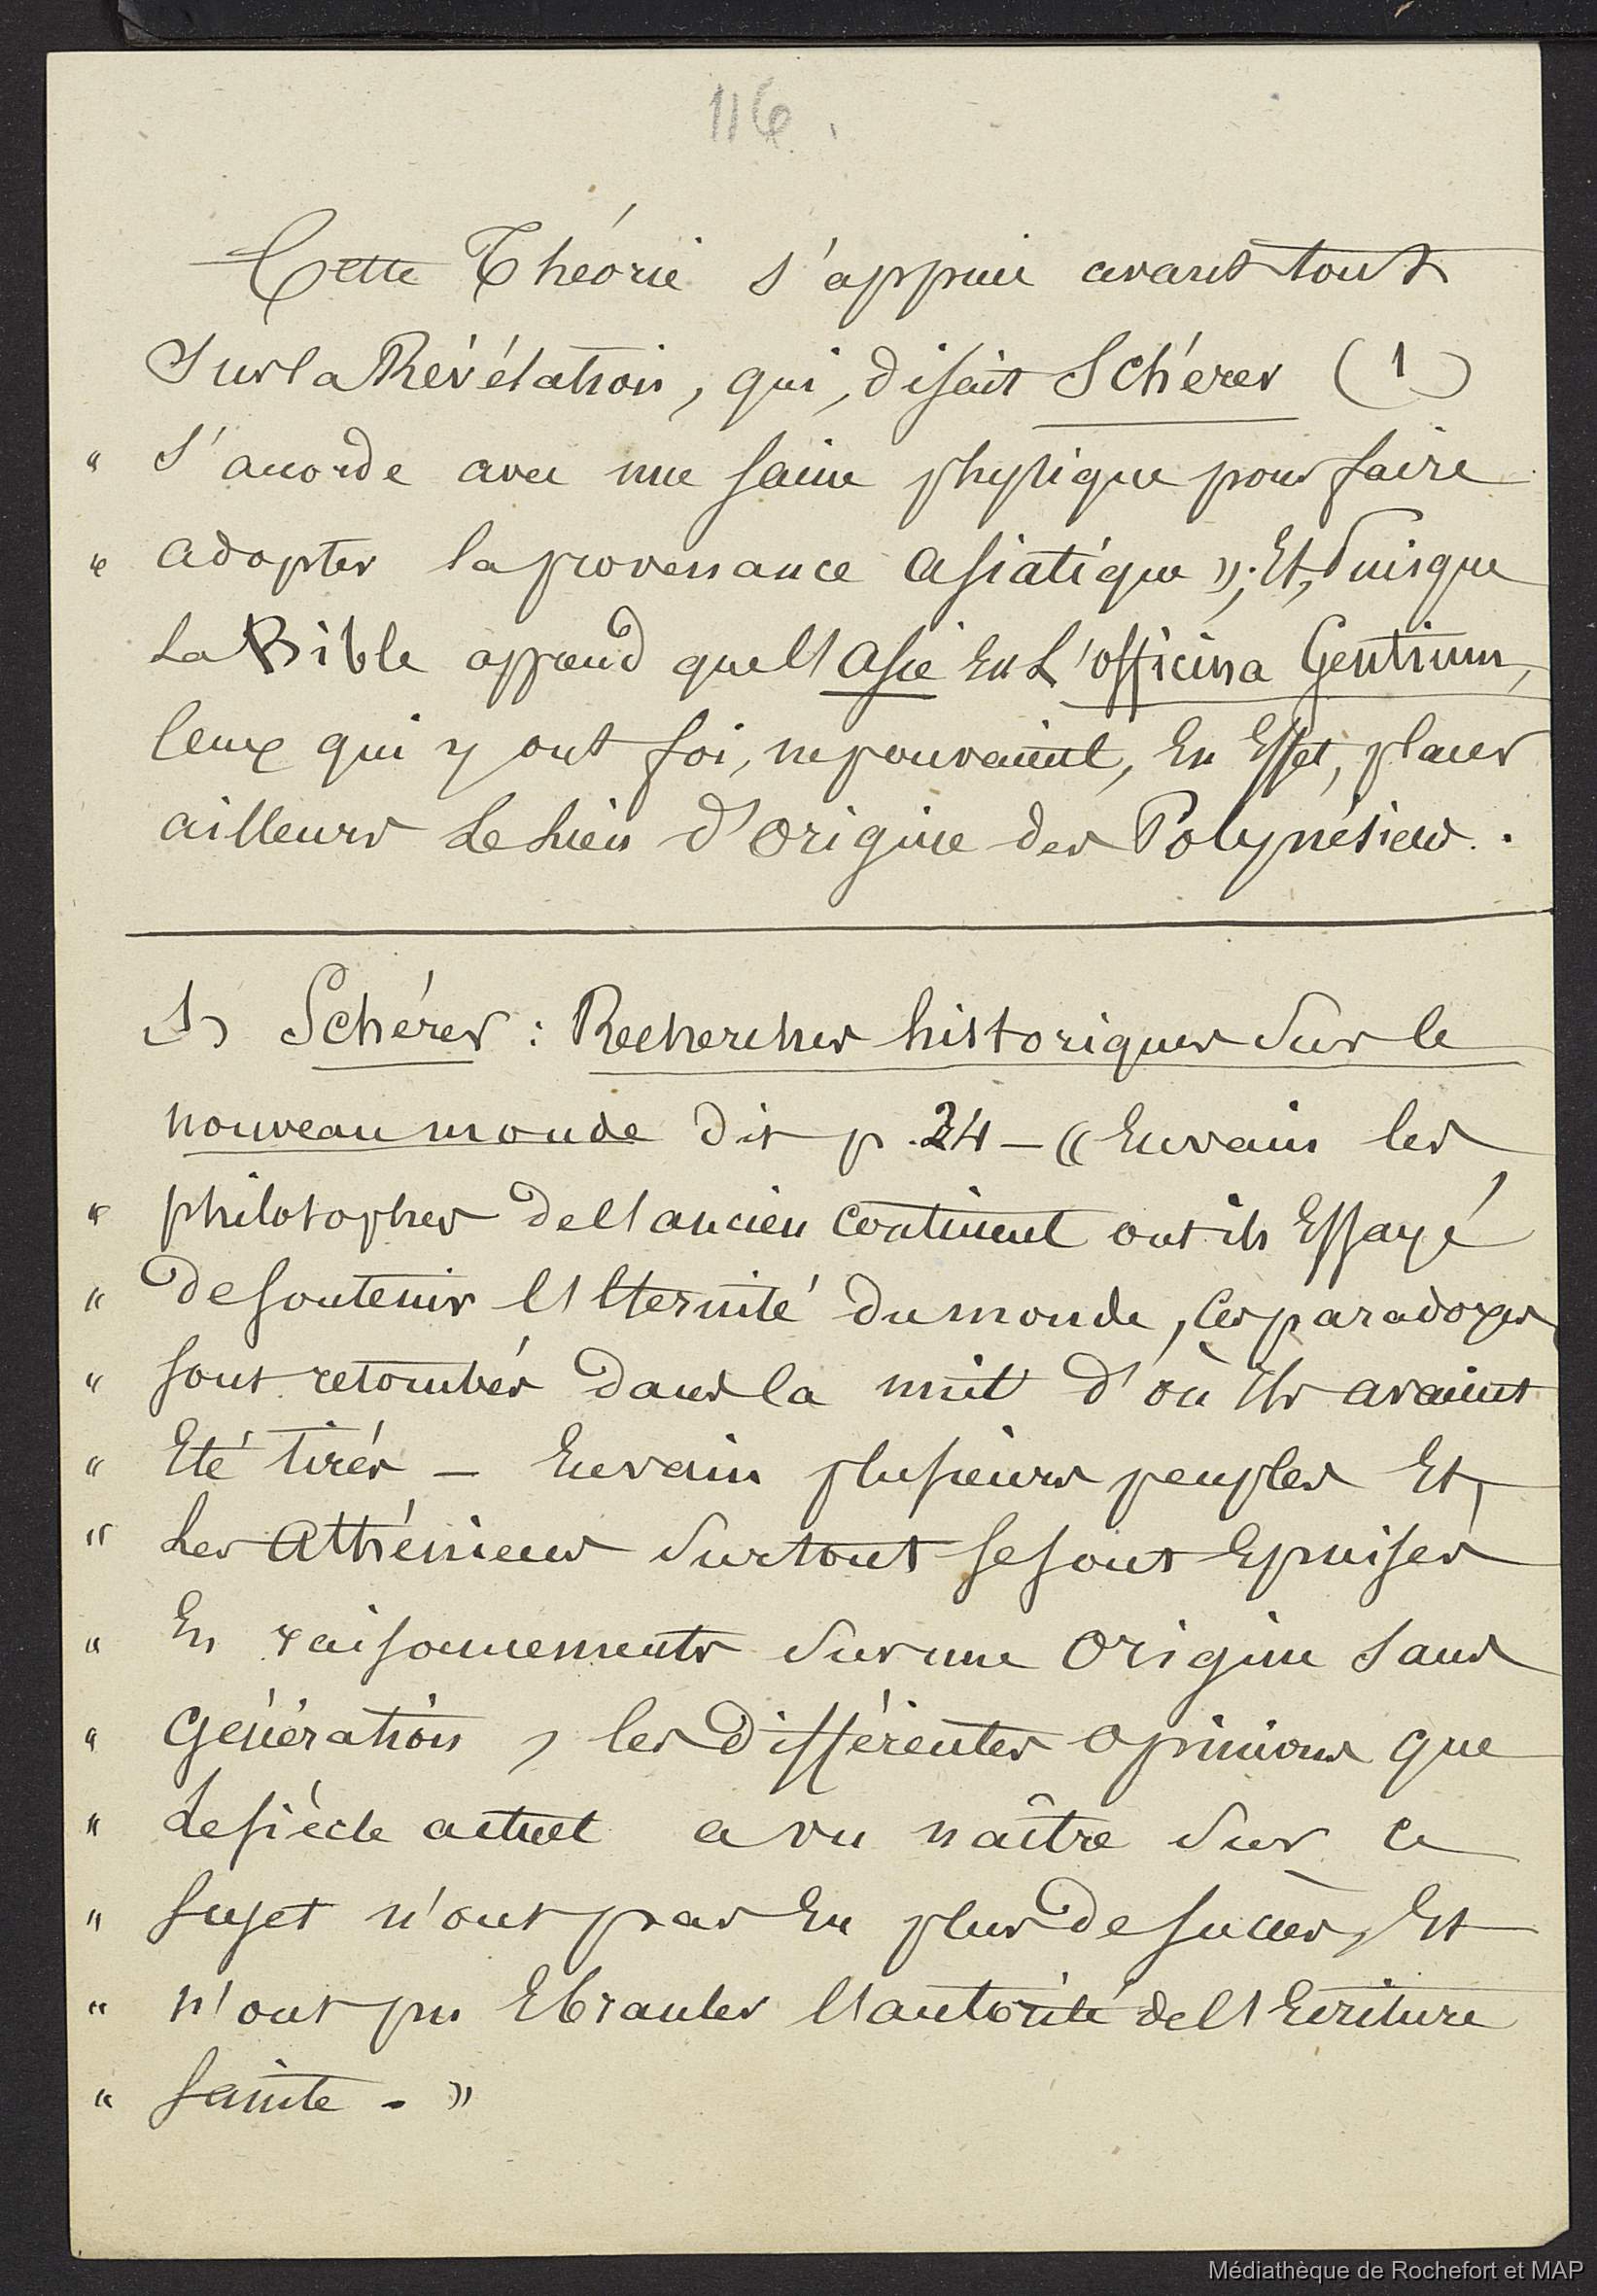 116.
Cette Théorie s'appuie avant tout
sur la Révélation, qui, disait Schérer (1)
" s'accorde avec une saine physique pour faire
" adopter la provenance asiatique »; Et, puisque
La Bible apprend que l'Asie est L'officina Gentium,
ceux qui y ont foi, ne pouvaient, En Effet, placer
ailleurs Le Lieu d'origine des Polynésiens.
1) Schérer : Recherches historiques sur le
nouveau monde dit p. 24 - « En vain les
" philosophes de l'ancien continent ont ils Essayé
" de soutenir l'Eternité du monde, Ces paradoxes
" sont retombés dans la nuit d'où ils avaient
" Eté tirés - En vain plusieurs peuples Et,
" Les Athéniens surtout se sont Epuisés
" En raisonnements sur une Origine sans
" Génération, les différentes opinions que
" Le siècle actuel a vu naître sur ce
" sujet n'ont pas Eu plus de succès, Et
" n'ont pu Ebranler l'autorité de l'Ecriture
" sainte. »
Médiathèque de Rochefort et MAP